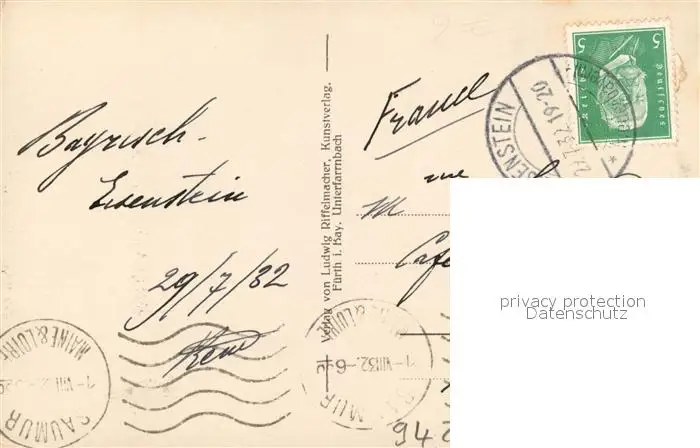 Bayrisch-
Eisenstein
29/7/32
René
Verlag von Ludwig Riffelmacher, Kunstverlag.
Fürth i. Bay. Unterfarrnbach
France
M
5
5
Deutsches
Reich
EISENSTEIN
27.7.32 19-20
privacy protection
Datenschutz
SAUMUR
MAINE & LOIRE
1-VIII
SAUMUR
MAINE & LOIRE
1-VIII 32